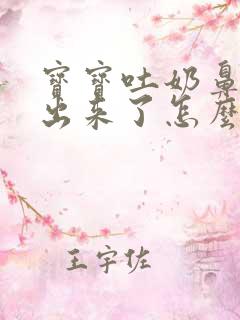 寶寶吐奶鼻
出來了怎麼
王宇佐